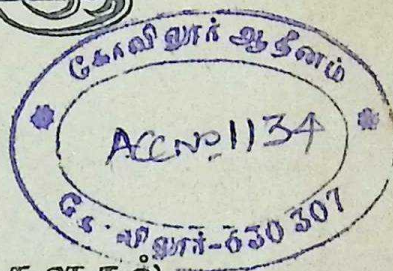 கோவிலூர் ஆதீனம்
ACC No 1134
கோவிலூர்-630 307